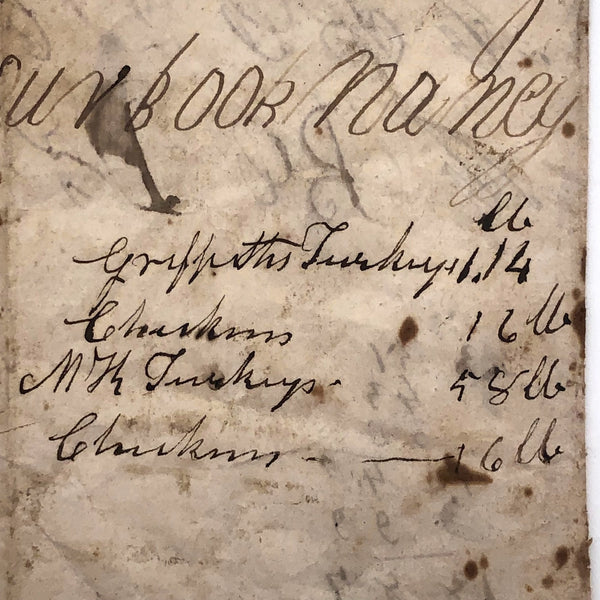 our book Nancy
lb
Griffiths Turkeys 114
Chickens 16 lb
McK Turkeys. 58 lb
Chickens - — 16 lb